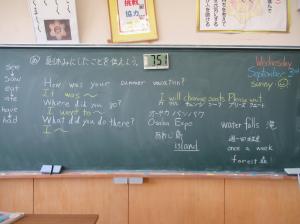 挑戦
協力
夏休みにしたことを伝えよう。
75
Wednesday
September 3rd
sunny
see
saw
eat
ate
have
had
How was your summer vacation?
It was ~
Where did you go?
I went to ~
What did you do there?
I ~
I will change seats. Please wait
オーサカ バンパク
Osaka Expo
あわじ島
island
water falls 滝
週一回
once a week
forest 森